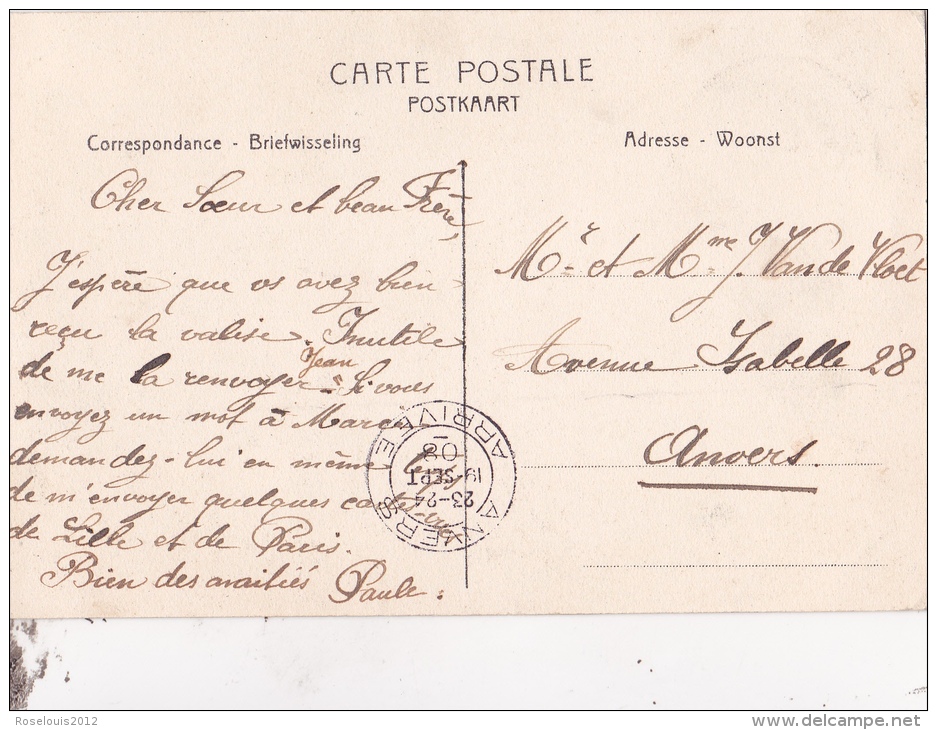 CARTE POSTALE
POSTKAART
Correspondance - Briefwisseling
Adresse - Woonst
Cher Sœur et beau Frère,
J'espère que vs avez bien
reçu la valise. Inutile
de me la renvoyer. Si vous
Jean
envoyez un mot à Marcel
demandez-lui en même temps
de m'envoyer quelques cartes vue
de Lille et de Paris.
Bien des amitiés Paule.
Mr et Mme J. Van de Vloet
Avenue Isabelle 28
Anvers.
ANVERS
ARRIVÉE
23-24
19-SEPT
08
Roselouis2012
www.delcampe.net